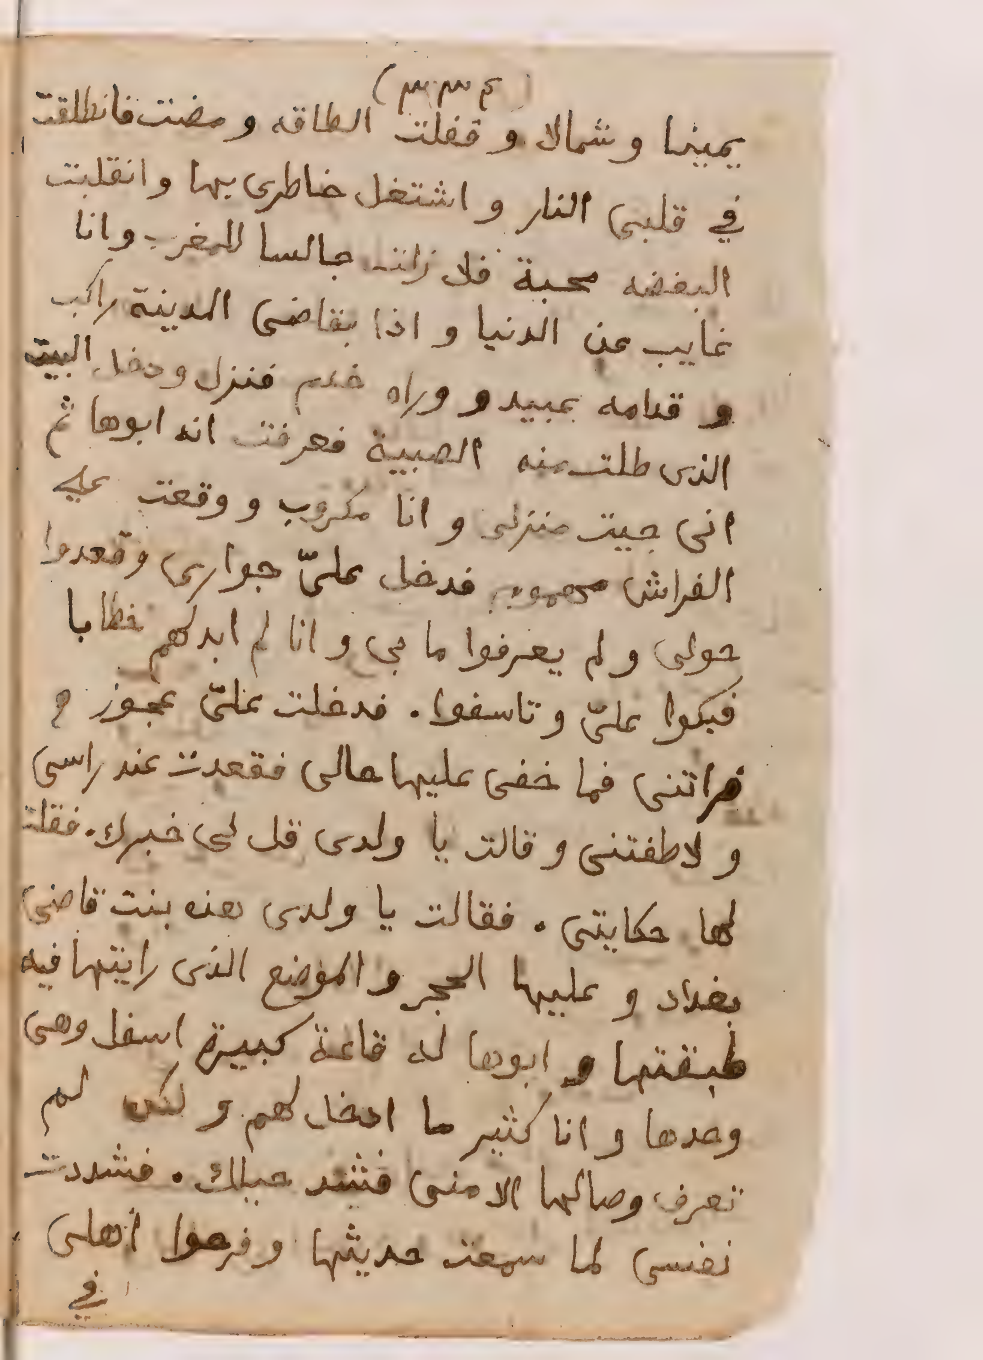 يمينا و شمالا و قفلت الطاقه و مضت فانطلقت
في قلبى النار و اشتغل خاطرى بها و انقلبت
البغضه محبة فلا زلت جالسا للمغرب و انا
غايب عن الدنيا و اذا بقاضى المدينة راكب
و قدامه عبيد و وراه خدم فنزل و دخل البيت
الذى طلت منه الصبية فعرفت انه ابوها ثم
انى جيت منزلى و انا مكروب و وقعت على
الفراش مهموم فدخل علىّ جوارى وقعدوا
حولى و لم يعرفوا ما بى و انا لم ابد لهم خطابا
فبكوا علىّ و تاسفوا. فدخلت علىّ عجوز
فراتنى فما خفى عليها حالى فقعدت عند راسى
و لاطفتنى و قالت يا ولدى قل لى خبرك. فقلت
لها حكايتى. فقالت يا ولدى هذه بنت قاضى
بغداد و عليها الحجر و الموضع الذى رايتها فيه
طبقتها و ابوها له قاعة كبيرة اسفل وهى
وحدها و انا كثير ما ادخل لهم و لكن لم
تعرف وصالها الا منى فشد حيلك. فشددت
نفسى لما سمعت حديثها و فرحوا اهلى
في